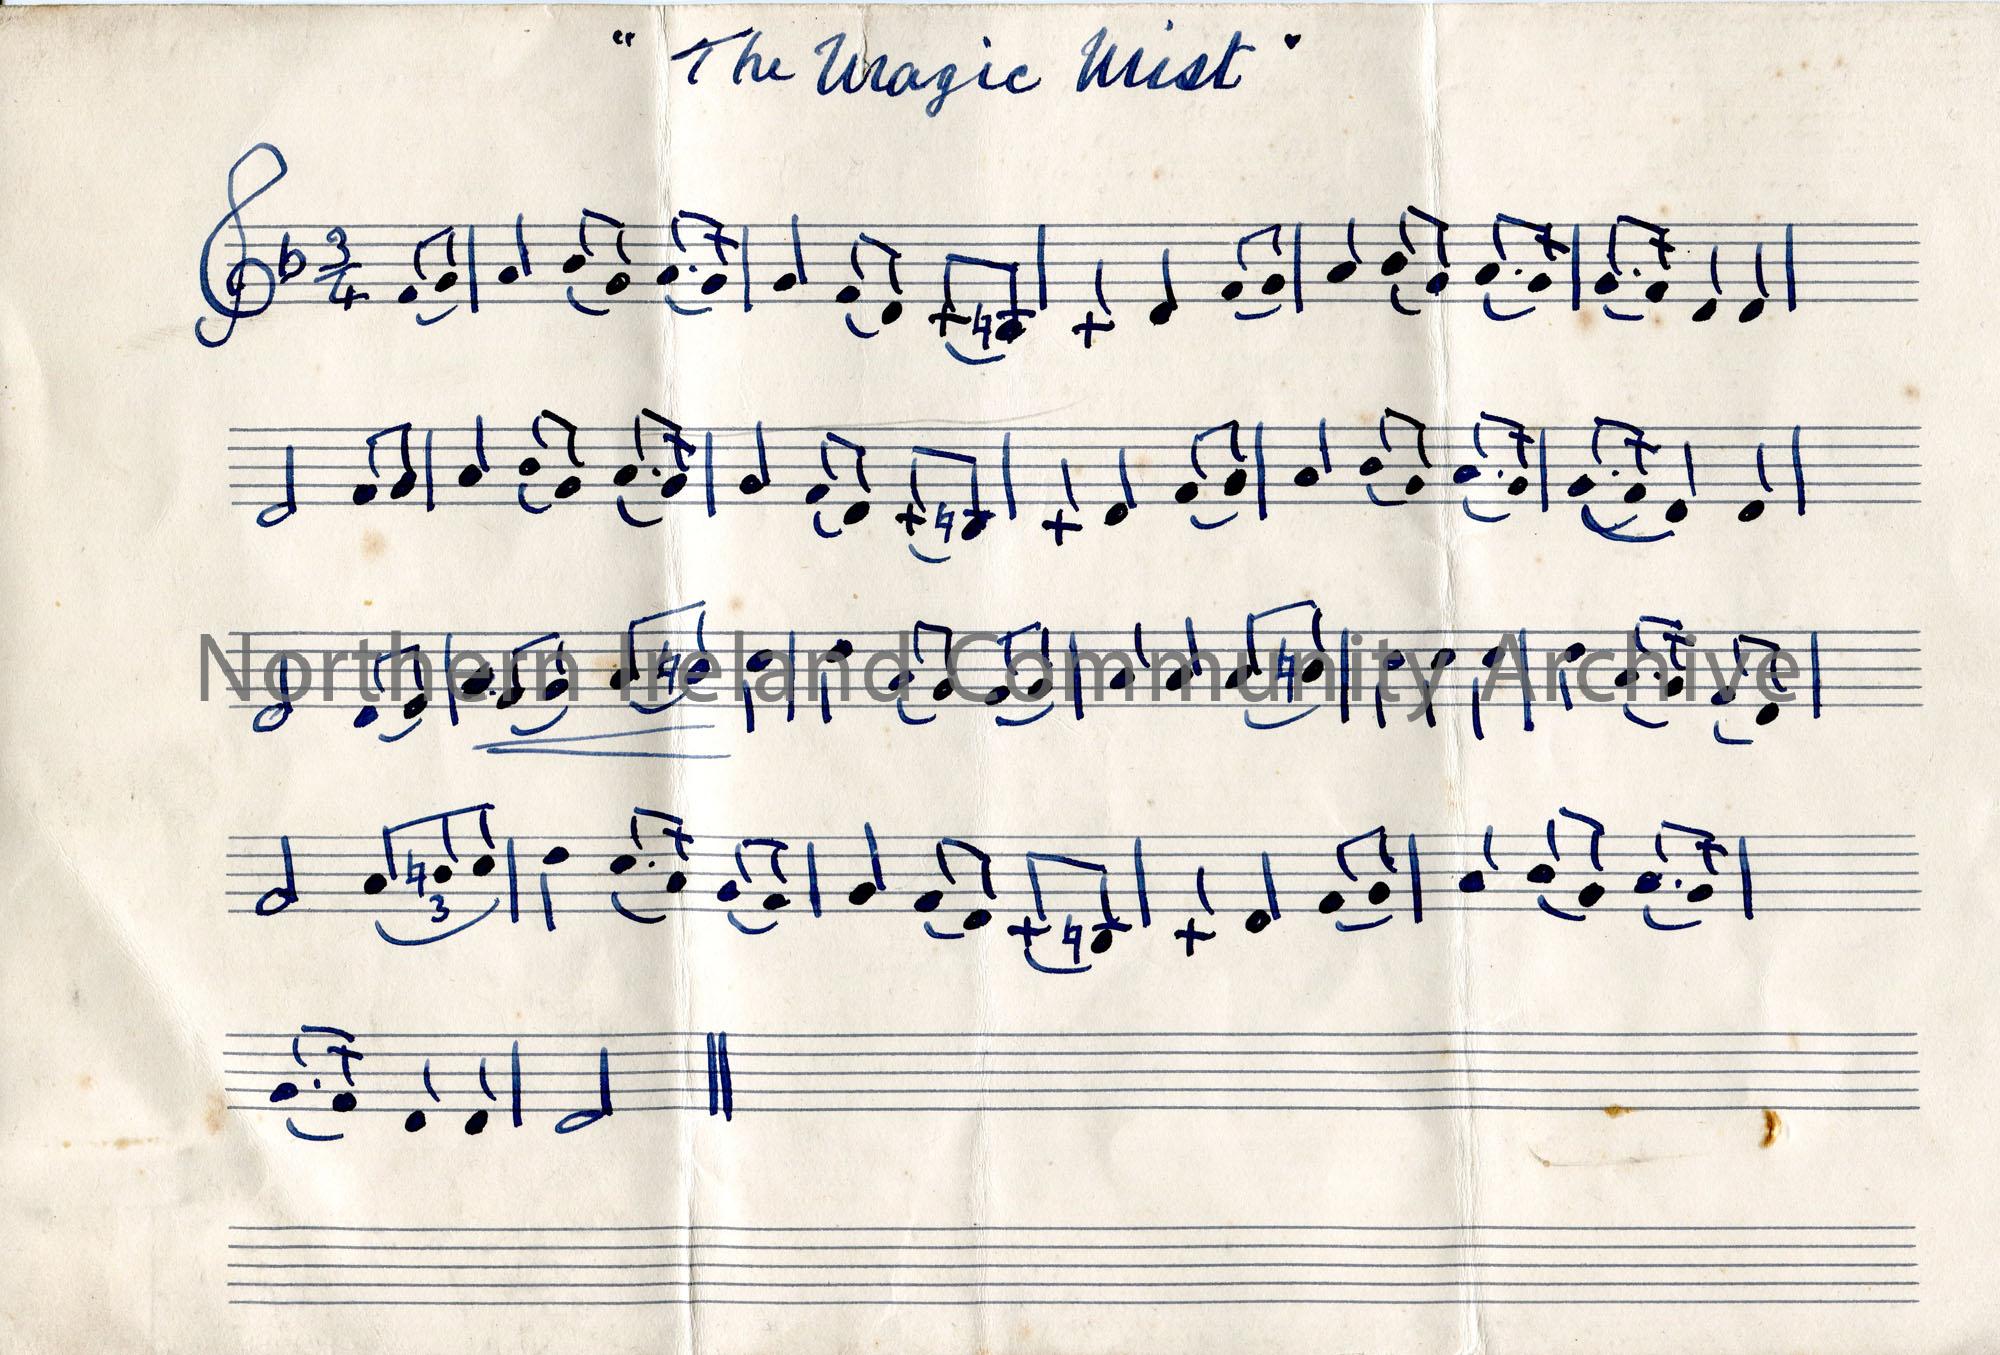 "The Magic Mist"
3
4
Northern Ireland Community Archive
3